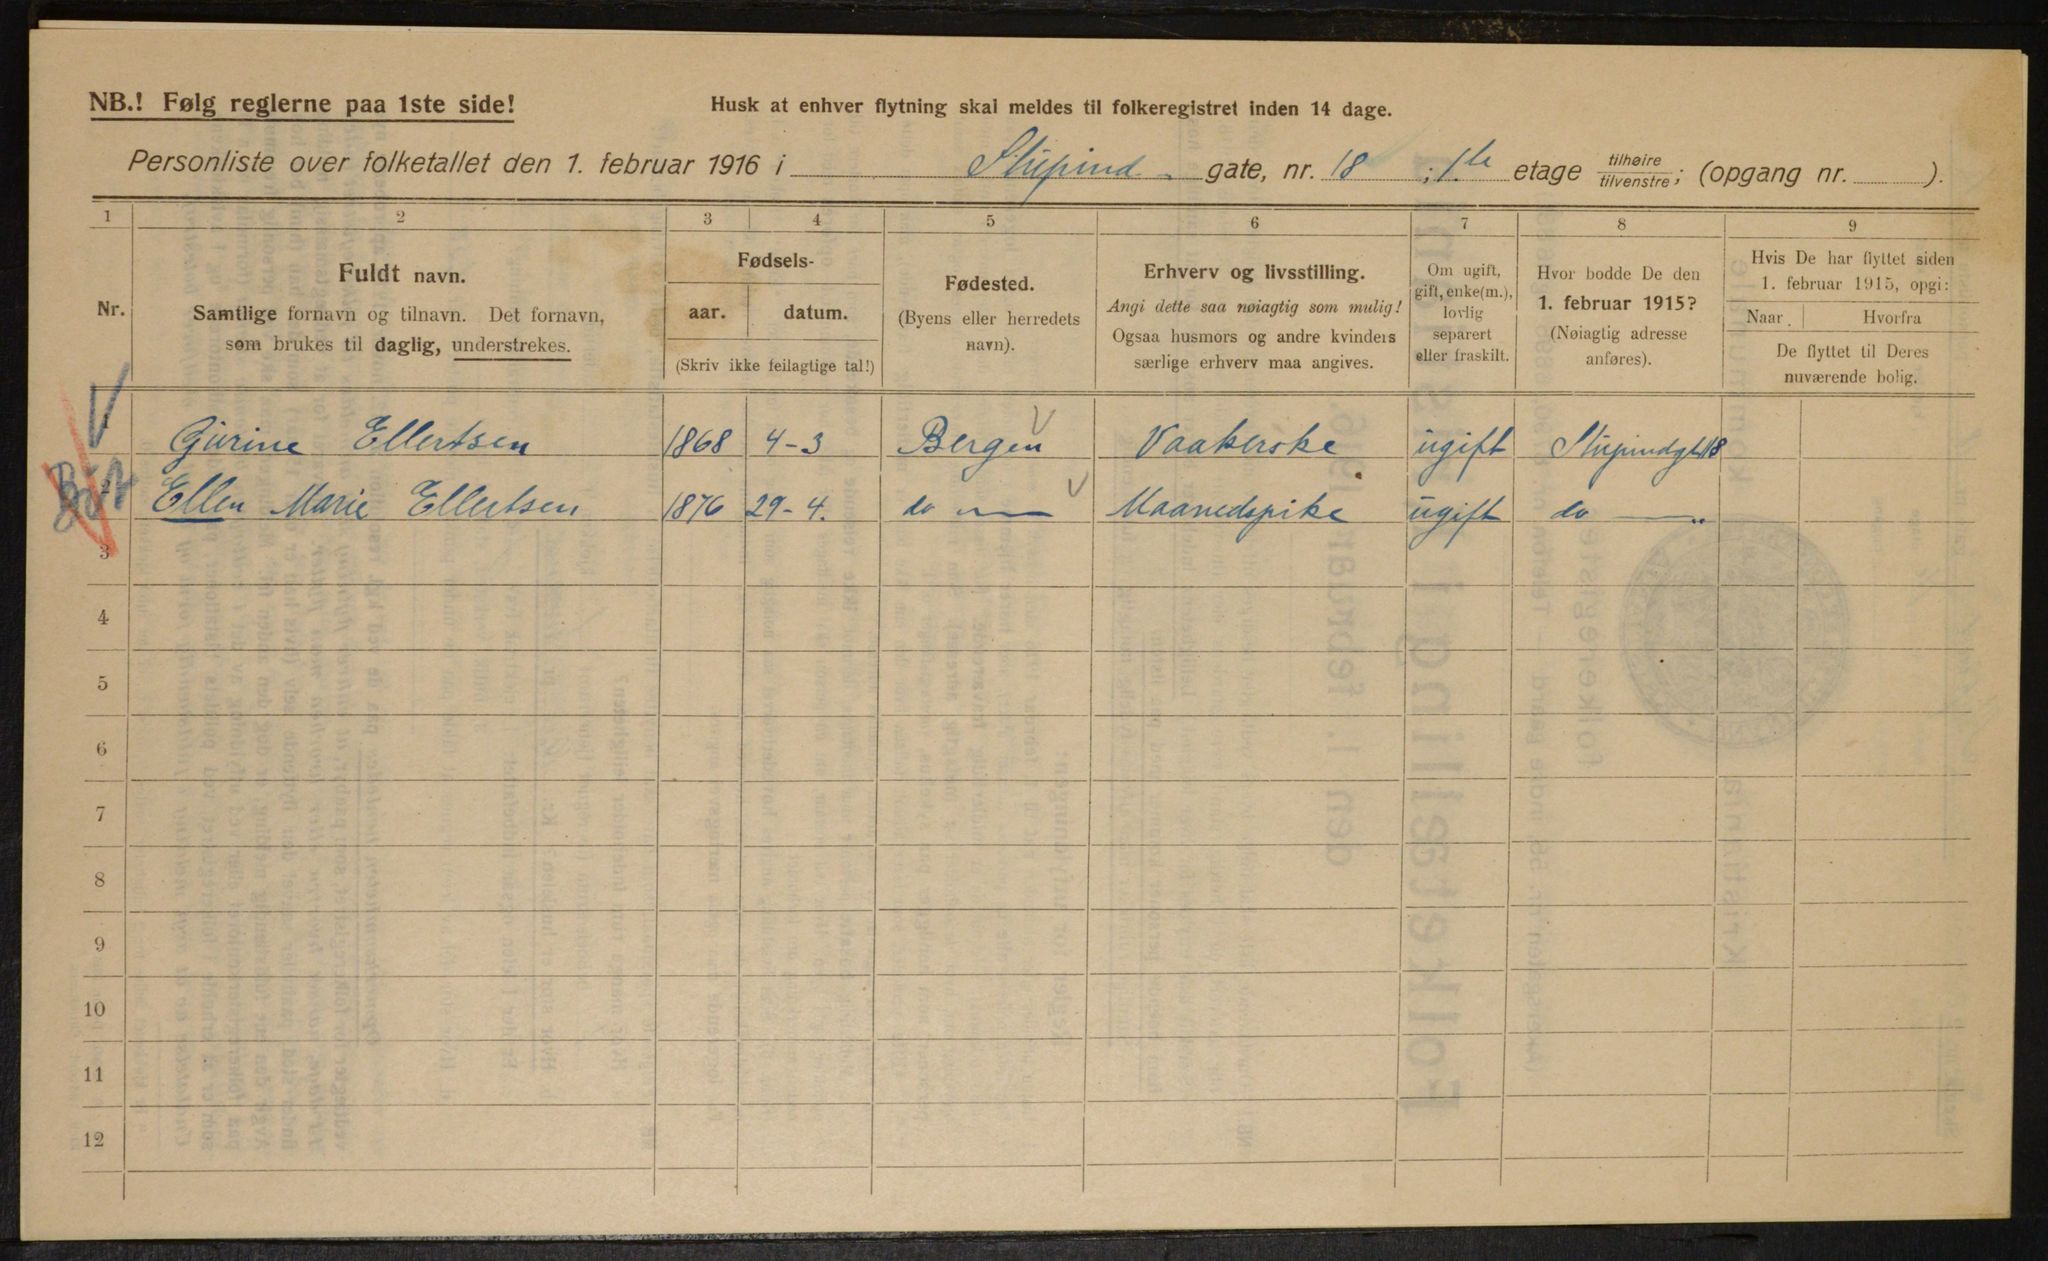 NB.! Følg reglerne paa 1ste side!
Husk at enhver flytning skal meldes til folkeregistret inden 14 dage.
Personliste over folketallet den 1. februar 1916 i Stupind - gate, nr. 18 ; 1.te etage tilhøire/tilvenstre; (opgang nr. ).
1 2 3 4 5 6 7 8 9
Nr.
Fuldt navn.
Samtlige fornavn og tilnavn. Det fornavn,
som brukes til daglig, understrekes.
Fødsels-
aar. datum.
(Skriv ikke feilagtige tal!)
Fødested.
(Byens eller herredets
navn).
Erhverv og livsstilling.
Angi dette saa nøiagtig som mulig!
Ogsaa husmors og andre kvinders
særlige erhverv maa angives.
Om ugift,
gift, enke(m.),
lovlig
separert
eller fraskilt.
Hvor bodde De den
1. februar 1915?
(Nøiagtig adresse
anføres).
Hvis De har flyttet siden
1. februar 1915, opgi:
Naar Hvorfra
De flyttet til Deres
nuværende bolig.
1 Gurine Ellertsen 1868 4-3 Bergen Vaakerske ugift Stupindgt 18
2 Ellen Marie Ellertsen 1876 29-4. do Maanedspike ugift do
3
4
5
6
7
8
9
10
11
12